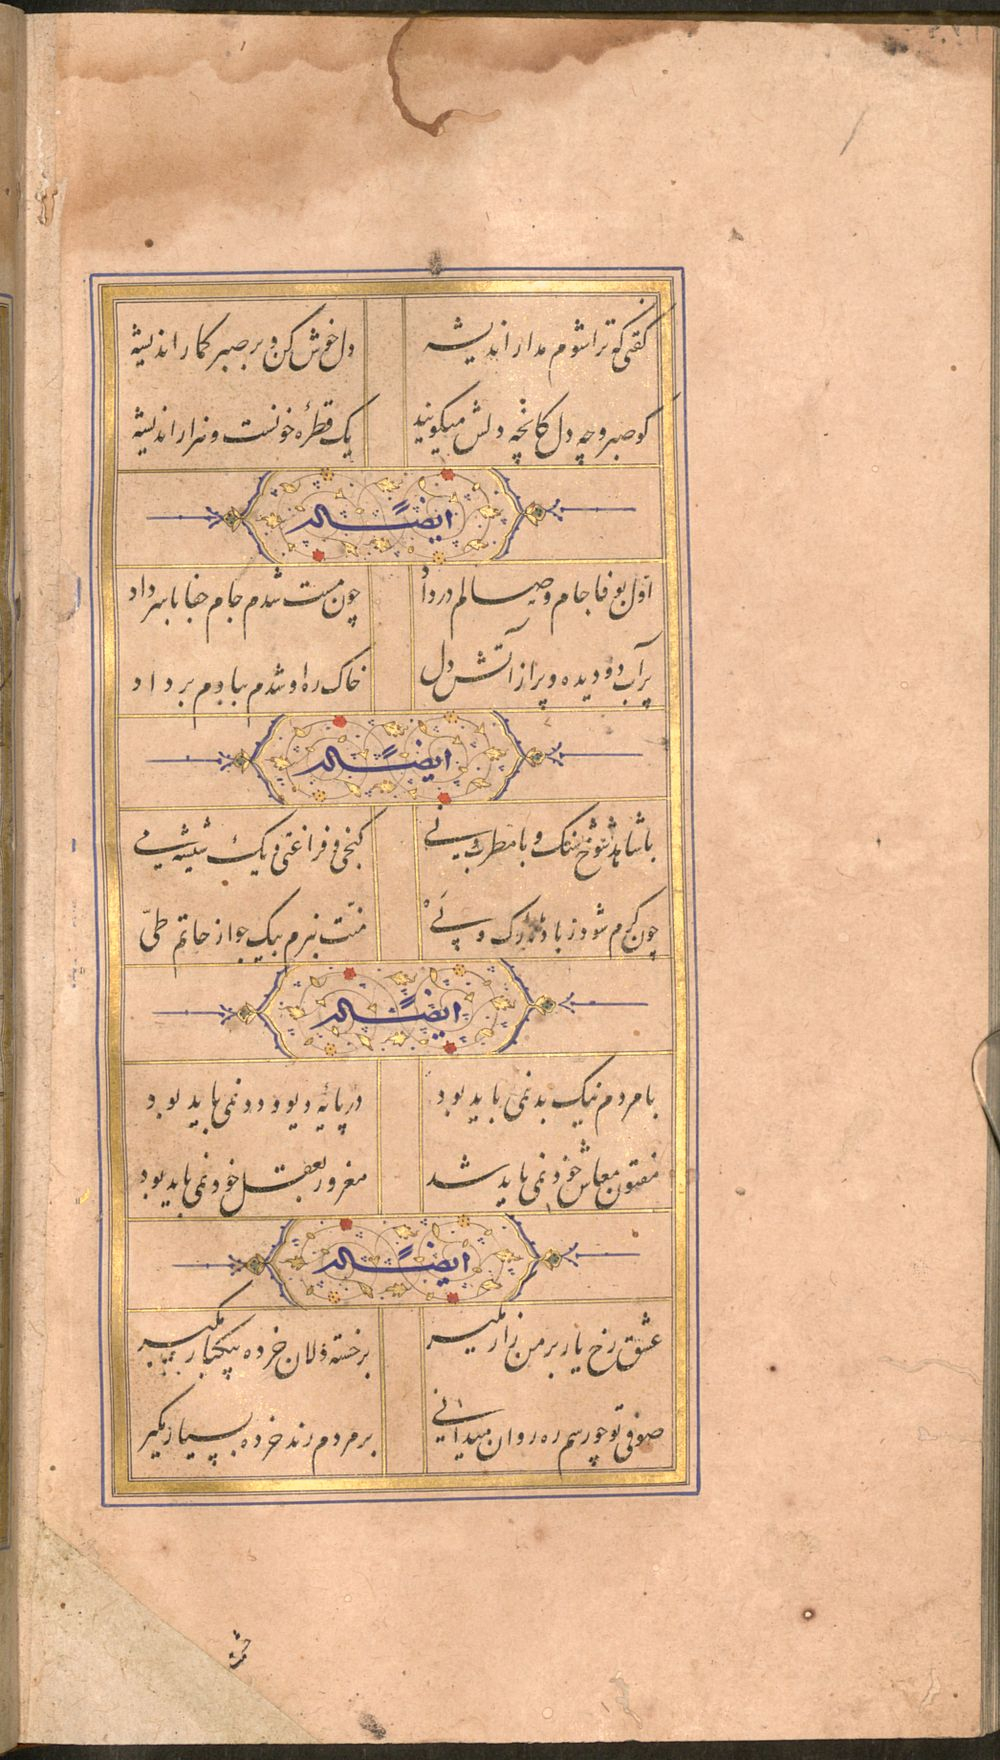 گفتی که ترا شوم مدار اندیشه
دل خوش کن و بر صبر گمار اندیشه
کو صبر و چه دل کانچه دلش میگویند
یک قطرهٔ خونست و هزار اندیشه
ایضًا له
اول بوفا جام وصالم درداد
چون مست شدم جام جفا با سر داد
پر آب دو دیده و پر از آتش دل
خاک ره او شدم ببادم برداد
ایضًا له
با شاهد شوخ شنک و با مطرب و نی
کنجی و فراغتی و یک شیشه می
چون گرم شود ز باده رک و پی
منّت نبرم بیک جو از حاتم طیّ
ایضًا له
با مردم نیک بد نمی باید بود
در پایهٔ دیو و دد نمی باید بود
مفتون معاش خود نمی باید شد
مغرور بعقل خود نمی باید بود
ایضًا له
عشق رخ یار بر من زار مگیر
بر خسته دلان خرده بیکبار مگیر
صوفی تو چو رسم ره روان میدانی
بر مردم رند خرده بسیار مگیر